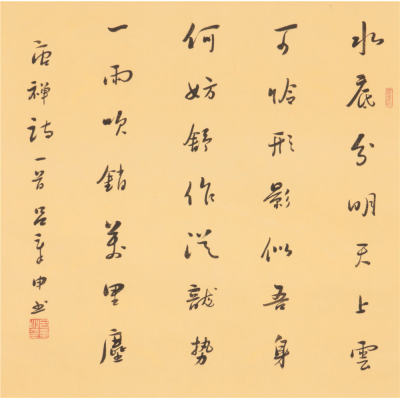 水底分明天上雲
可憐形影似吾身
何妨舒作從龍勢
一雨吹銷萬里塵
唐禪詩一首吕章申书